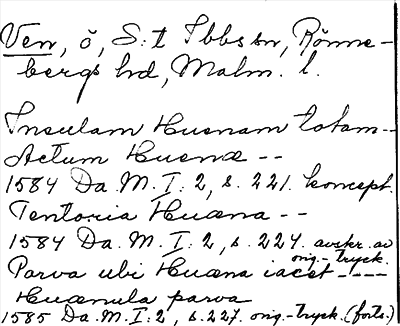 Ven, ö, S:t Ibbs sn, Rönne-
bergs hd, Malm. l.
Insulam Huenam totam --
Actum Huenæ --
1584 Da. M. I: 2, s. 221. koncept.
Tentoria Huæna --
1584 Da. M. I: 2, s. 224. avskr. av
orig.-tryck.
Parva ubi Huæna iacet ----
Huænula parva
1585 Da. M. I: 2, s. 227. orig.-tryck. (forts.)